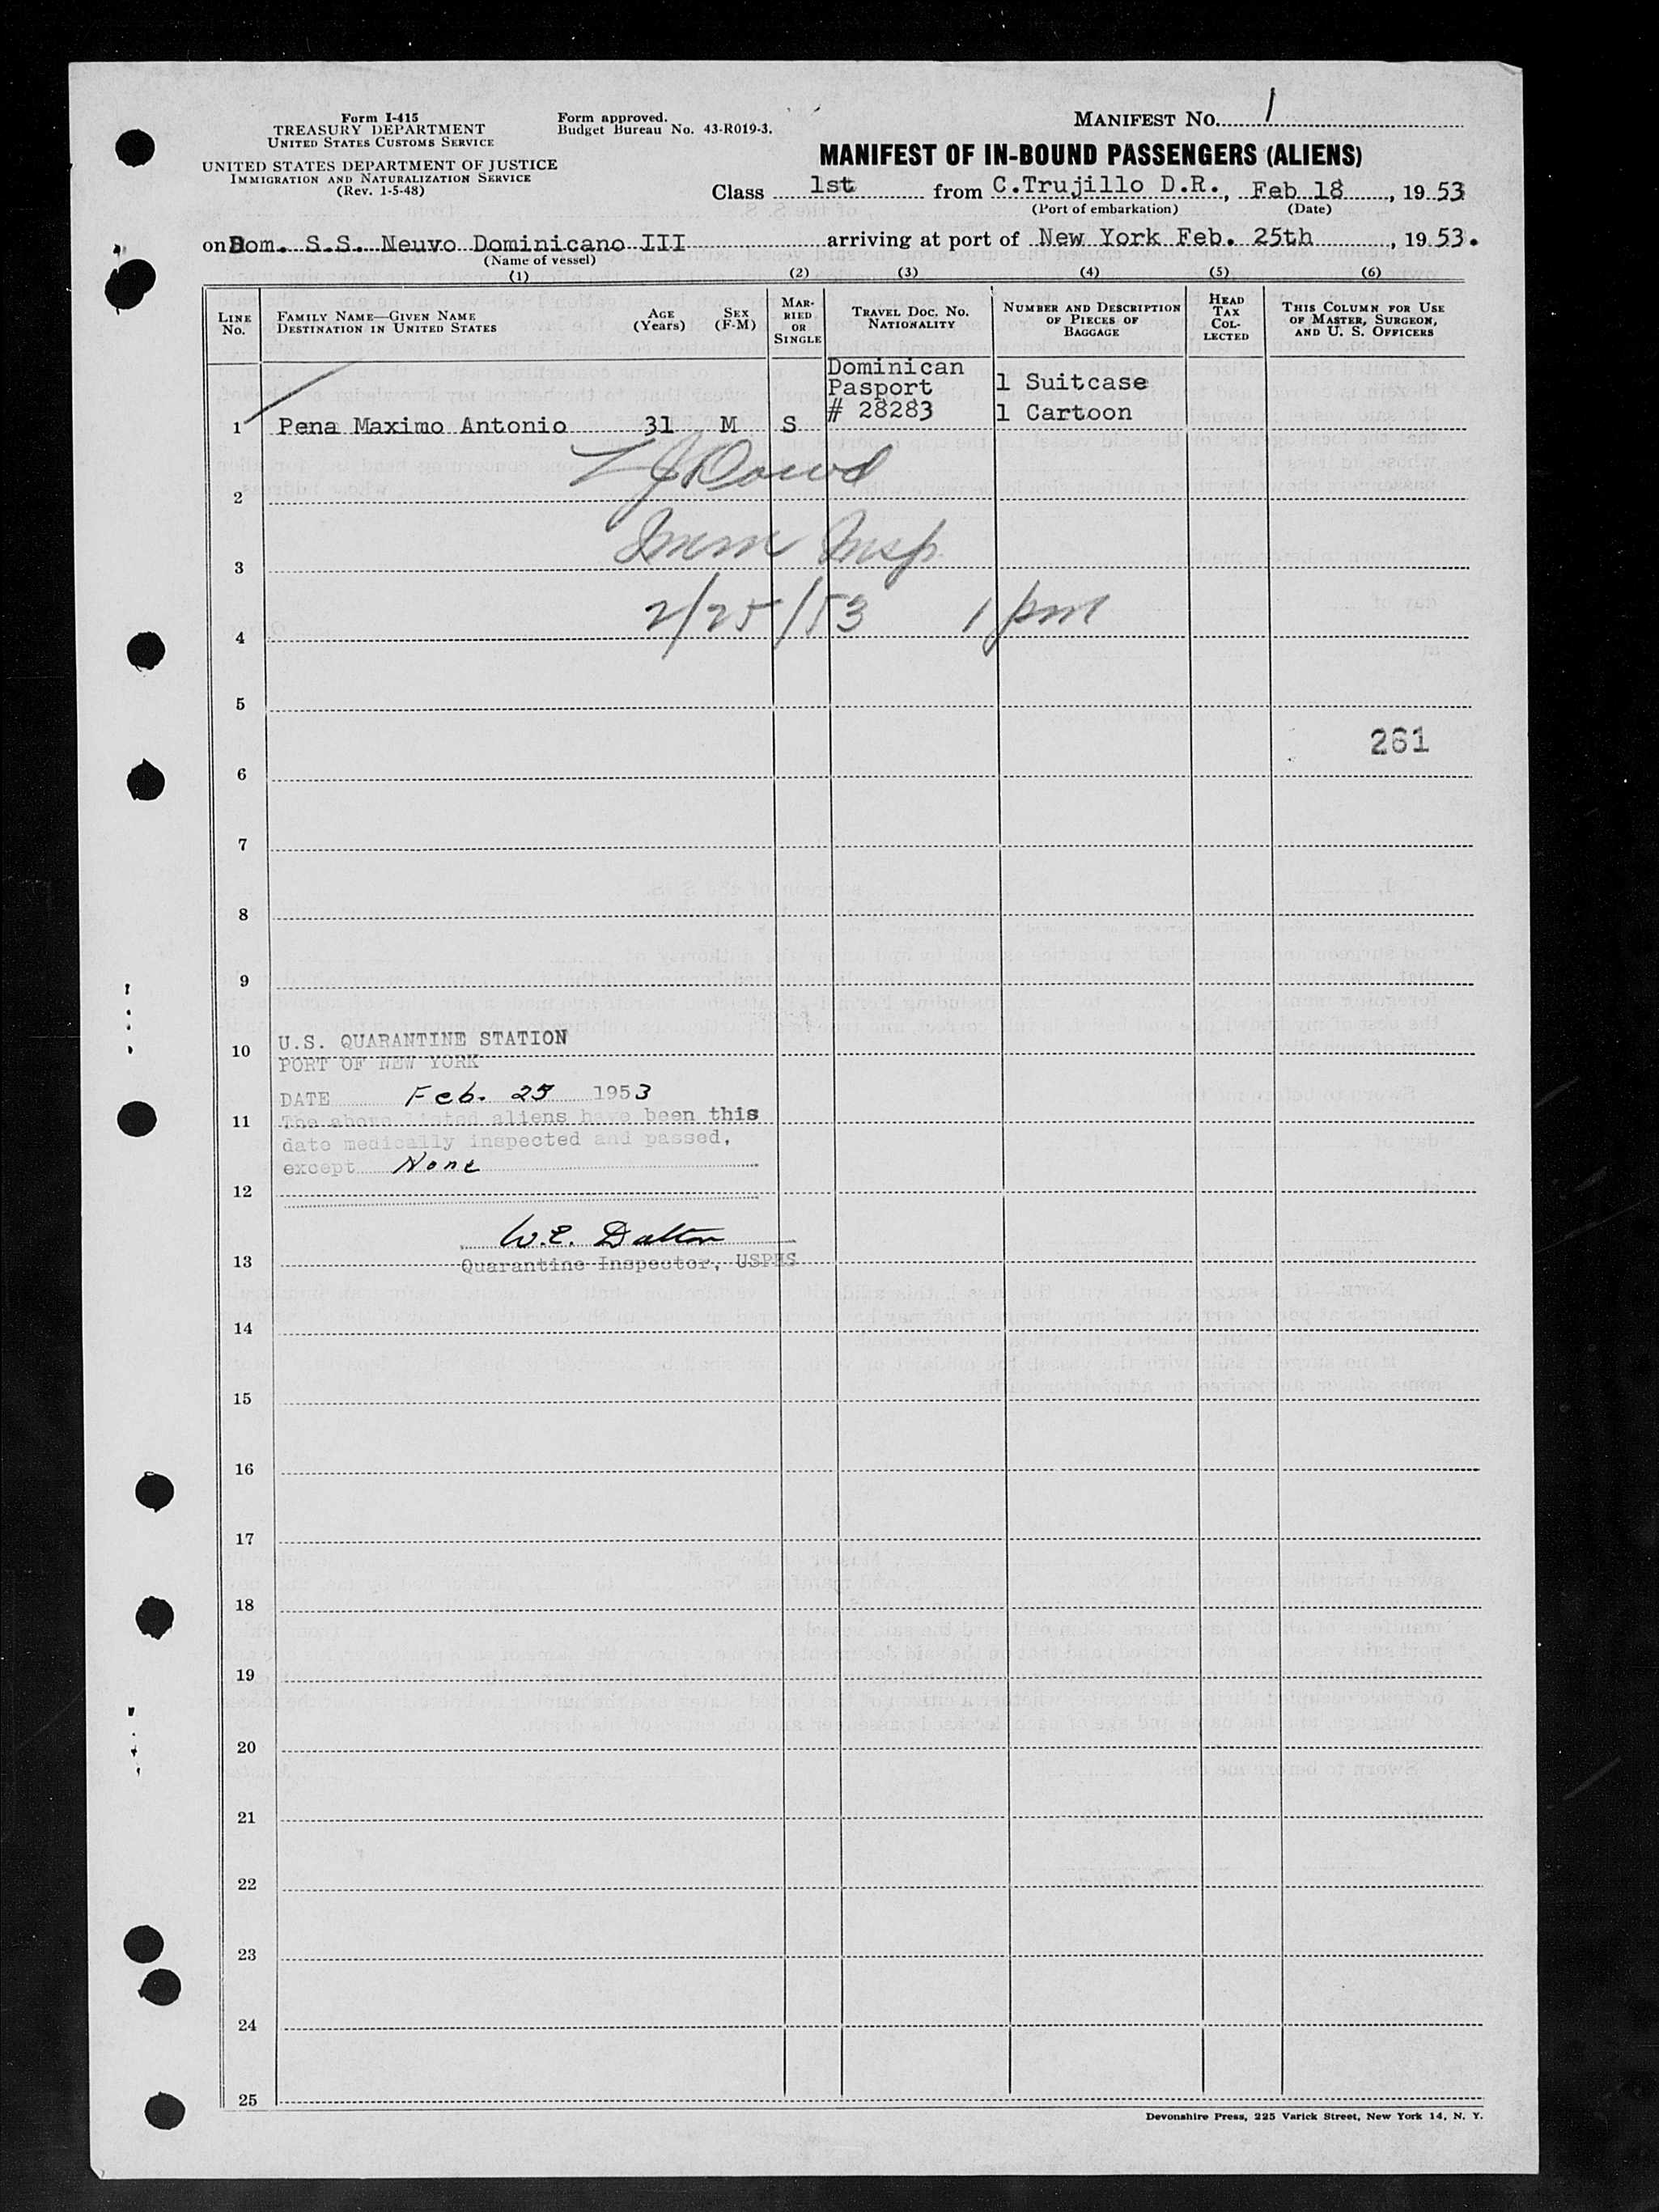 Form I-415
TREASURY DEPARTMENT
UNITED STATES CUSTOMS SERVICE
UNITED STATES DEPARTMENT OF JUSTICE
IMMIGRATION AND NATURALIZATION SERVICE
(Rev. 1-5-48)
Form approved.
Budget Bureau No. 43-R019-3.
MANIFEST NO. 1
MANIFEST OF IN-BOUND PASSENGERS (ALIENS)
Class 1st from C.Trujillo D.R., Feb 18, 19 53
(Port of embarkation) (Date)
on Dom. S.S. Neuvo Dominicano III arriving at port of New York Feb. 25th, 19 53.
(Name of vessel)
(1) (2) (3) (4) (5) (6)
LINE No. FAMILY NAME—GIVEN NAME DESTINATION IN UNITED STATES AGE (Years) SEX (F-M) MARRIED OR SINGLE TRAVEL DOC. NO. NATIONALITY NUMBER AND DESCRIPTION OF PIECES OF BAGGAGE HEAD TAX COLLECTED THIS COLUMN FOR USE OF MASTER, SURGEON, AND U. S. OFFICERS
Dominican
Pasport 1 Suitcase
# 28283 1 Cartoon
1 Pena Maximo Antonio 31 M S
Dowd
2
Imm Insp
3
2/25/53 1 pm
4
5
261
6
7
8
9
U.S. QUARANTINE STATION
10
PORT OF NEW YORK
DATE Feb. 25 1953
11
The above listed aliens have been this
date medically inspected and passed,
except None
12
W.E. Dalton
13
Quarantine Inspector, USPHS
14
15
16
17
18
19
20
21
22
23
24
25
Devonshire Press, 225 Varick Street, New York 14, N. Y.